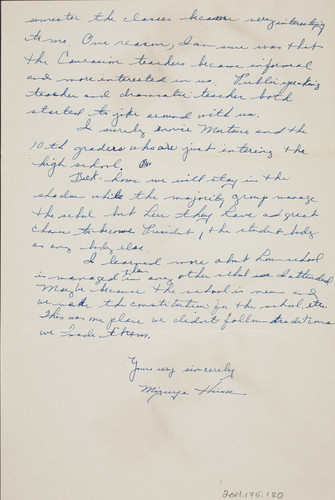 semester the classes became very interesting
to me. One reason, I am sure was that
the Caucasian teachers became informal
and more interested in us. Public speaking
teacher and dramatic teacher both
started to joke around with us.
I surely envie and the
10th graders who are just entering the
high school.
Back home we will stay in the
shadow while the majority group manage
the school but here they have as great
chance to become President, of the student body
as any body else.
I learned more about how school
is managed than any other school attended
Maybe because the school is new and
we made the constitution for the school, etc.
This was one place we didn't follow traditions
we made them.
Yours very sincerely
2001.195.180